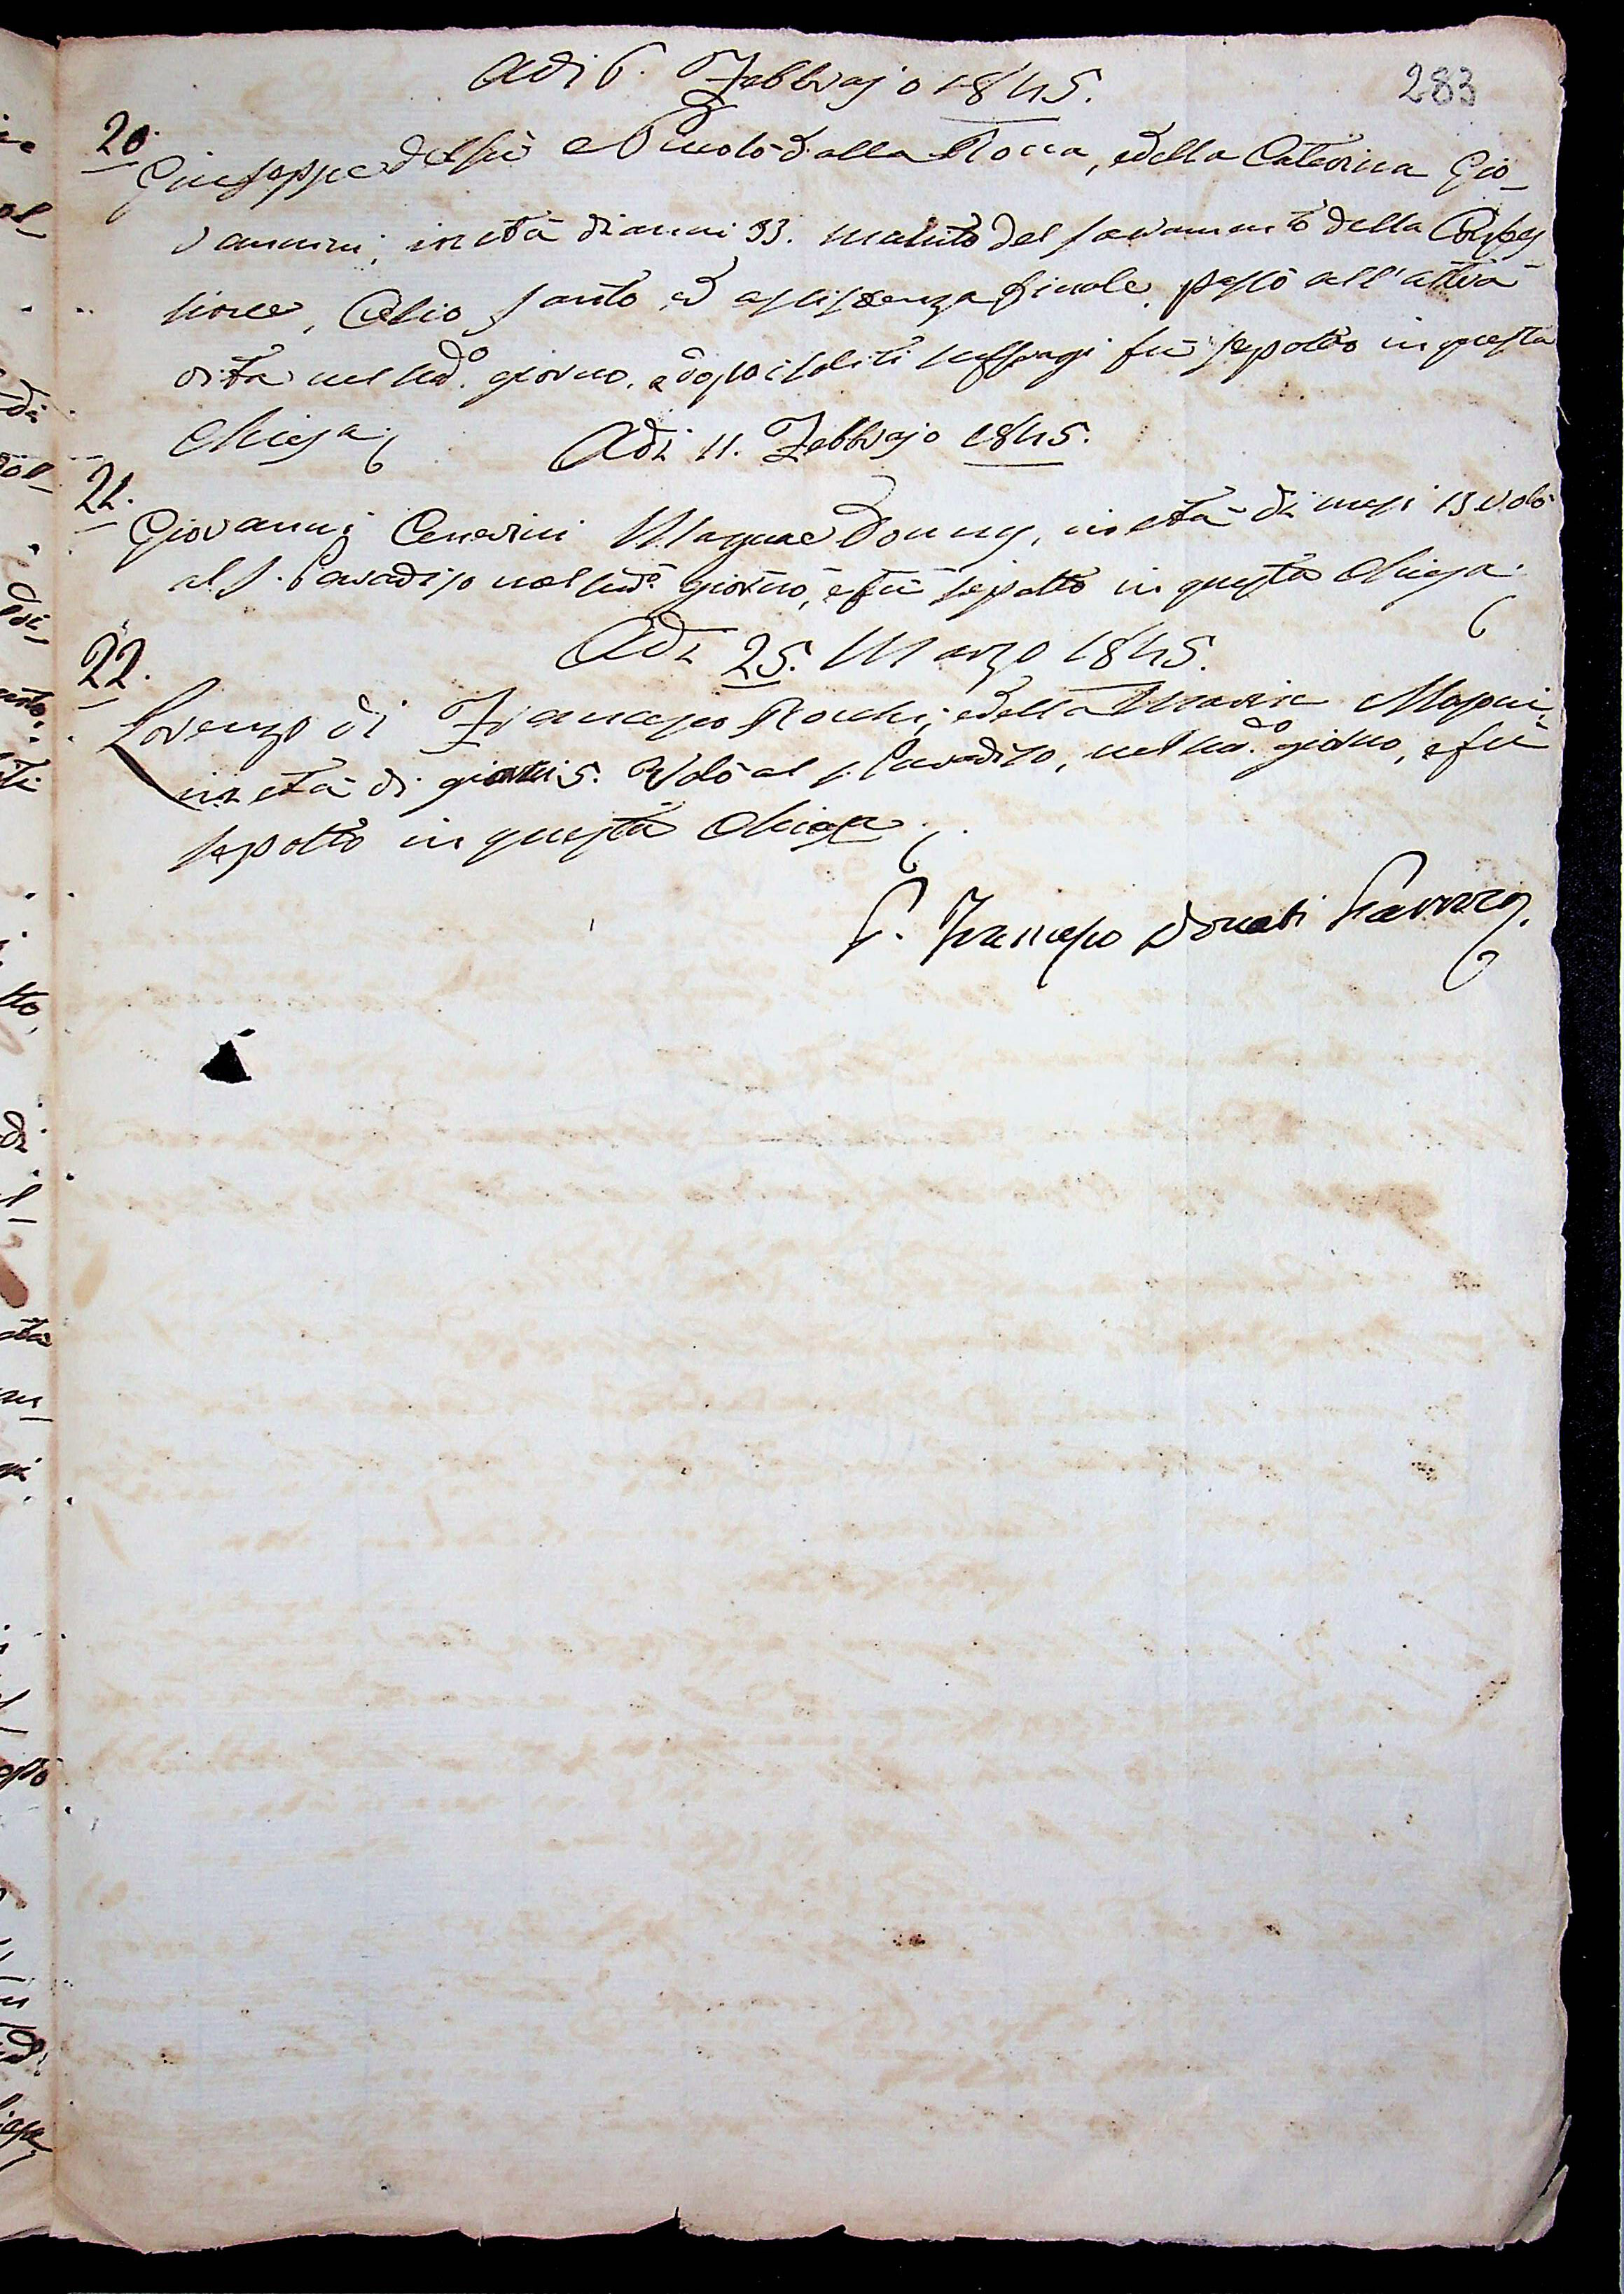 283
Adi 6. Febbrajo 1845.
20.
Giuseppe del fù Paolo dalla Rocca, e della Caterina Gio-
vannini, in età di anni 33. munito del sacramento della Confes
sione, Olio santo ed assistenza finale, passò all'altra
vita nel sud.o giorno, e dopo i soliti suffragi fù sepolto in questa
Chiesa.
Adi 11. Febbrajo 1845.
21.
Giovanni Cenerini in età di mesi 13 volò
al s. Paradiso nel sud.o giorno, e fù sepolto in questa Chiesa.
Adi 25. Marzo 1845.
22.
Lorenzo di Francesco Rocchi, e della Maria
in età di giorni 5. Volò al s. Paradiso, nel sud.o giorno, e fù
sepolto in questa Chiesa.
P. Francesco Donati Parroco.